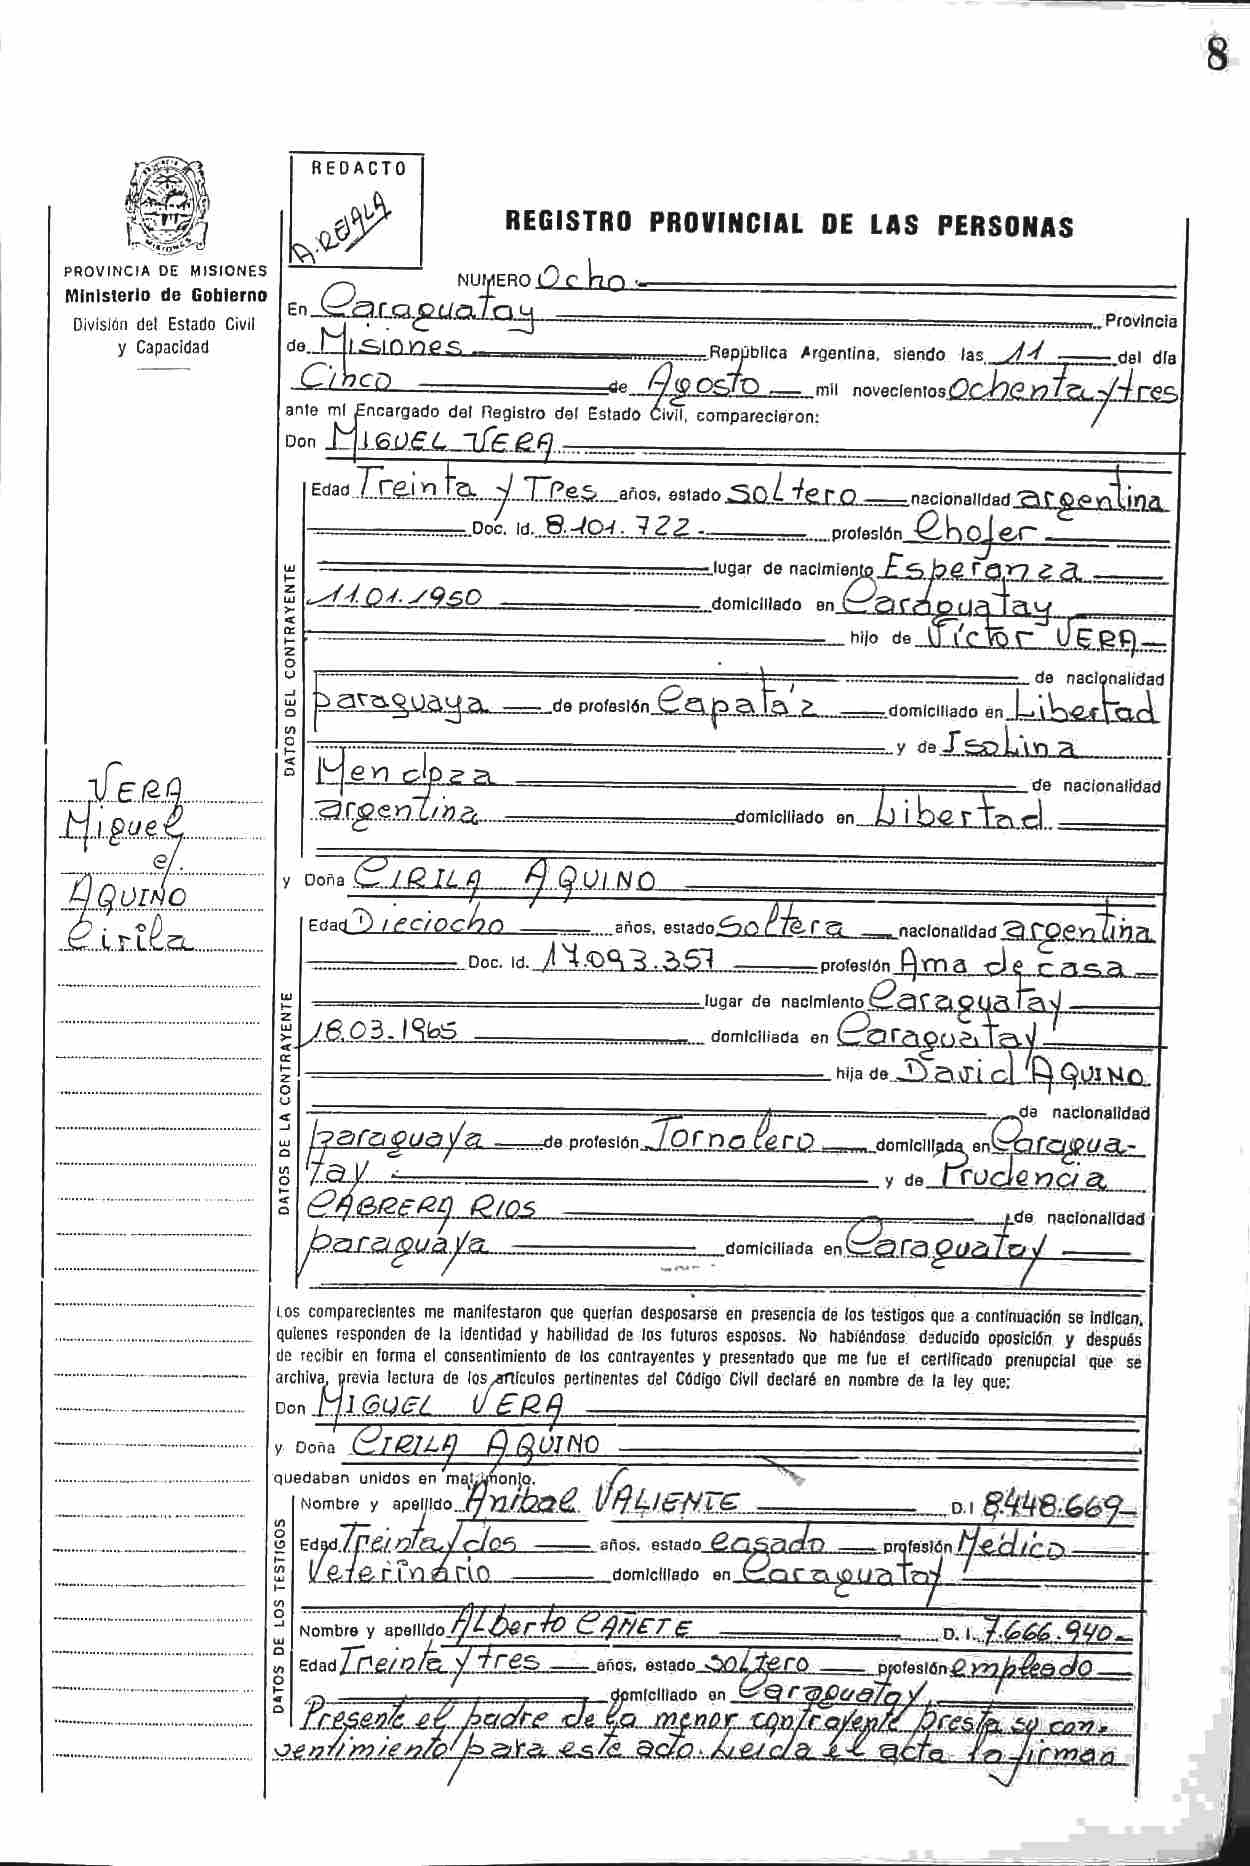 8
REDACTO
A. REIALA
REGISTRO PROVINCIAL DE LAS PERSONAS
PROVINCIA DE MISIONES
Ministerio de Gobierno
División del Estado Civil
y Capacidad
NUMERO Ocho
En Caraguatay Provincia
de Misiones República Argentina, siendo las 11 del día
Cinco de Agosto mil novecientos Ochenta y tres
ante mí Encargado del Registro del Estado Civil, comparecieron:
Don MIGUEL VERA
Edad Treinta y Tres años, estado soltero nacionalidad argentina
Doc. Id. 8.101.722 profesión Chofer
lugar de nacimiento Esperanza
11.01.1950 domiciliado en Caraguatay
hijo de Víctor VERA
de nacionalidad
paraguaya de profesión Capataz domiciliado en Libertad
y de Isolina
Mendoza de nacionalidad
argentina domiciliado en Libertad
DATOS DEL CONTRAYENTE
VERA
Miguel
c/.
AQUINO
Cirila
y Doña CIRILA AQUINO
Edad Dieciocho años, estado Soltera nacionalidad argentina
Doc. Id. 17.093.357 profesión Ama de casa
lugar de nacimiento Caraguatay
18.03.1965 domiciliada en Caraguatay
hija de David AQUINO
de nacionalidad
paraguaya de profesión Jornalero domiciliada en Caragua-
tay y de Prudencia
CABRERA RIOS de nacionalidad
paraguaya domiciliada en Caraguatay
DATOS DE LA CONTRAYENTE
Los comparecientes me manifestaron que querían desposarse en presencia de los testigos que a continuación se indican,
quienes responden de la identidad y habilidad de los futuros esposos. No habiéndose deducido oposición y después
de recibir en forma el consentimiento de los contrayentes y presentado que me fue el certificado prenupcial que se
archiva, previa lectura de los artículos pertinentes del Código Civil declaré en nombre de la ley que:
Don MIGUEL VERA
y Doña CIRILA AQUINO
quedaban unidos en matrimonio.
Nombre y apellido Anibal VALIENTE D.I 8.448.669
Edad Treinta y dos años, estado casado profesión Medico
Veterinario domiciliado en Caraguatay
Nombre y apellido Alberto CAÑETE D. I. 7.666.940
Edad Treinta y tres años, estado soltero profesión empleado
domiciliado en Caraguatay
DATOS DE LOS TESTIGOS
Presente el padre de la menor contrayente presta su con-
sentimiento para este acto. Leida el acta la firman